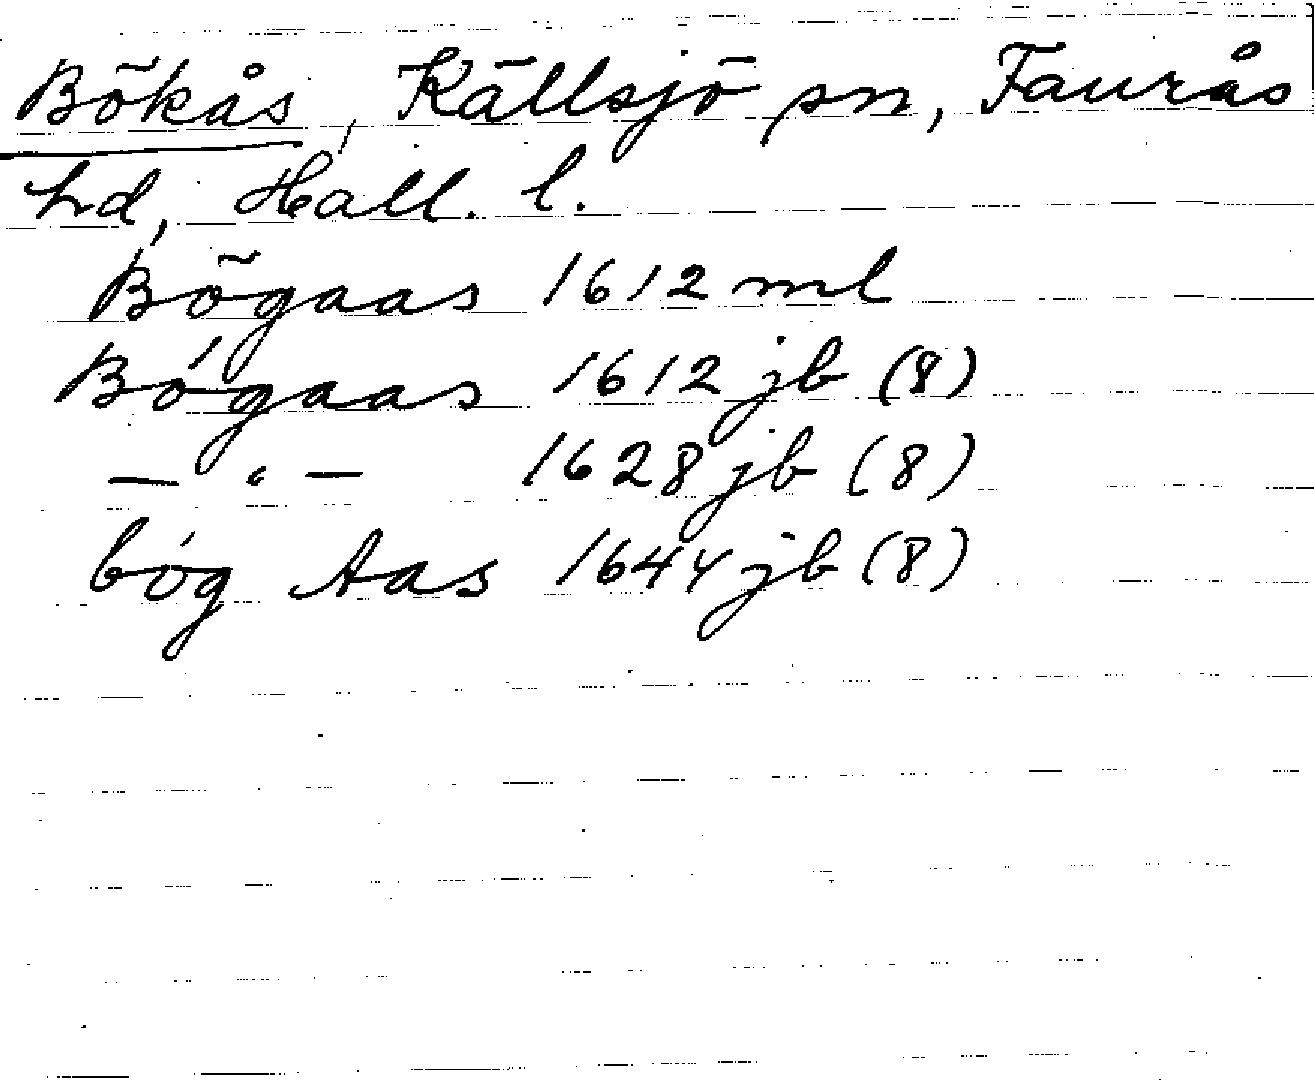 Bökås, Källsjö sn, Faurås
hd, Hall. l.
Bõgaas 1612 ml
Bógaas 1612 jb (8)
— " — 1628 jb (8)
bóg Aas 1644 jb (8)